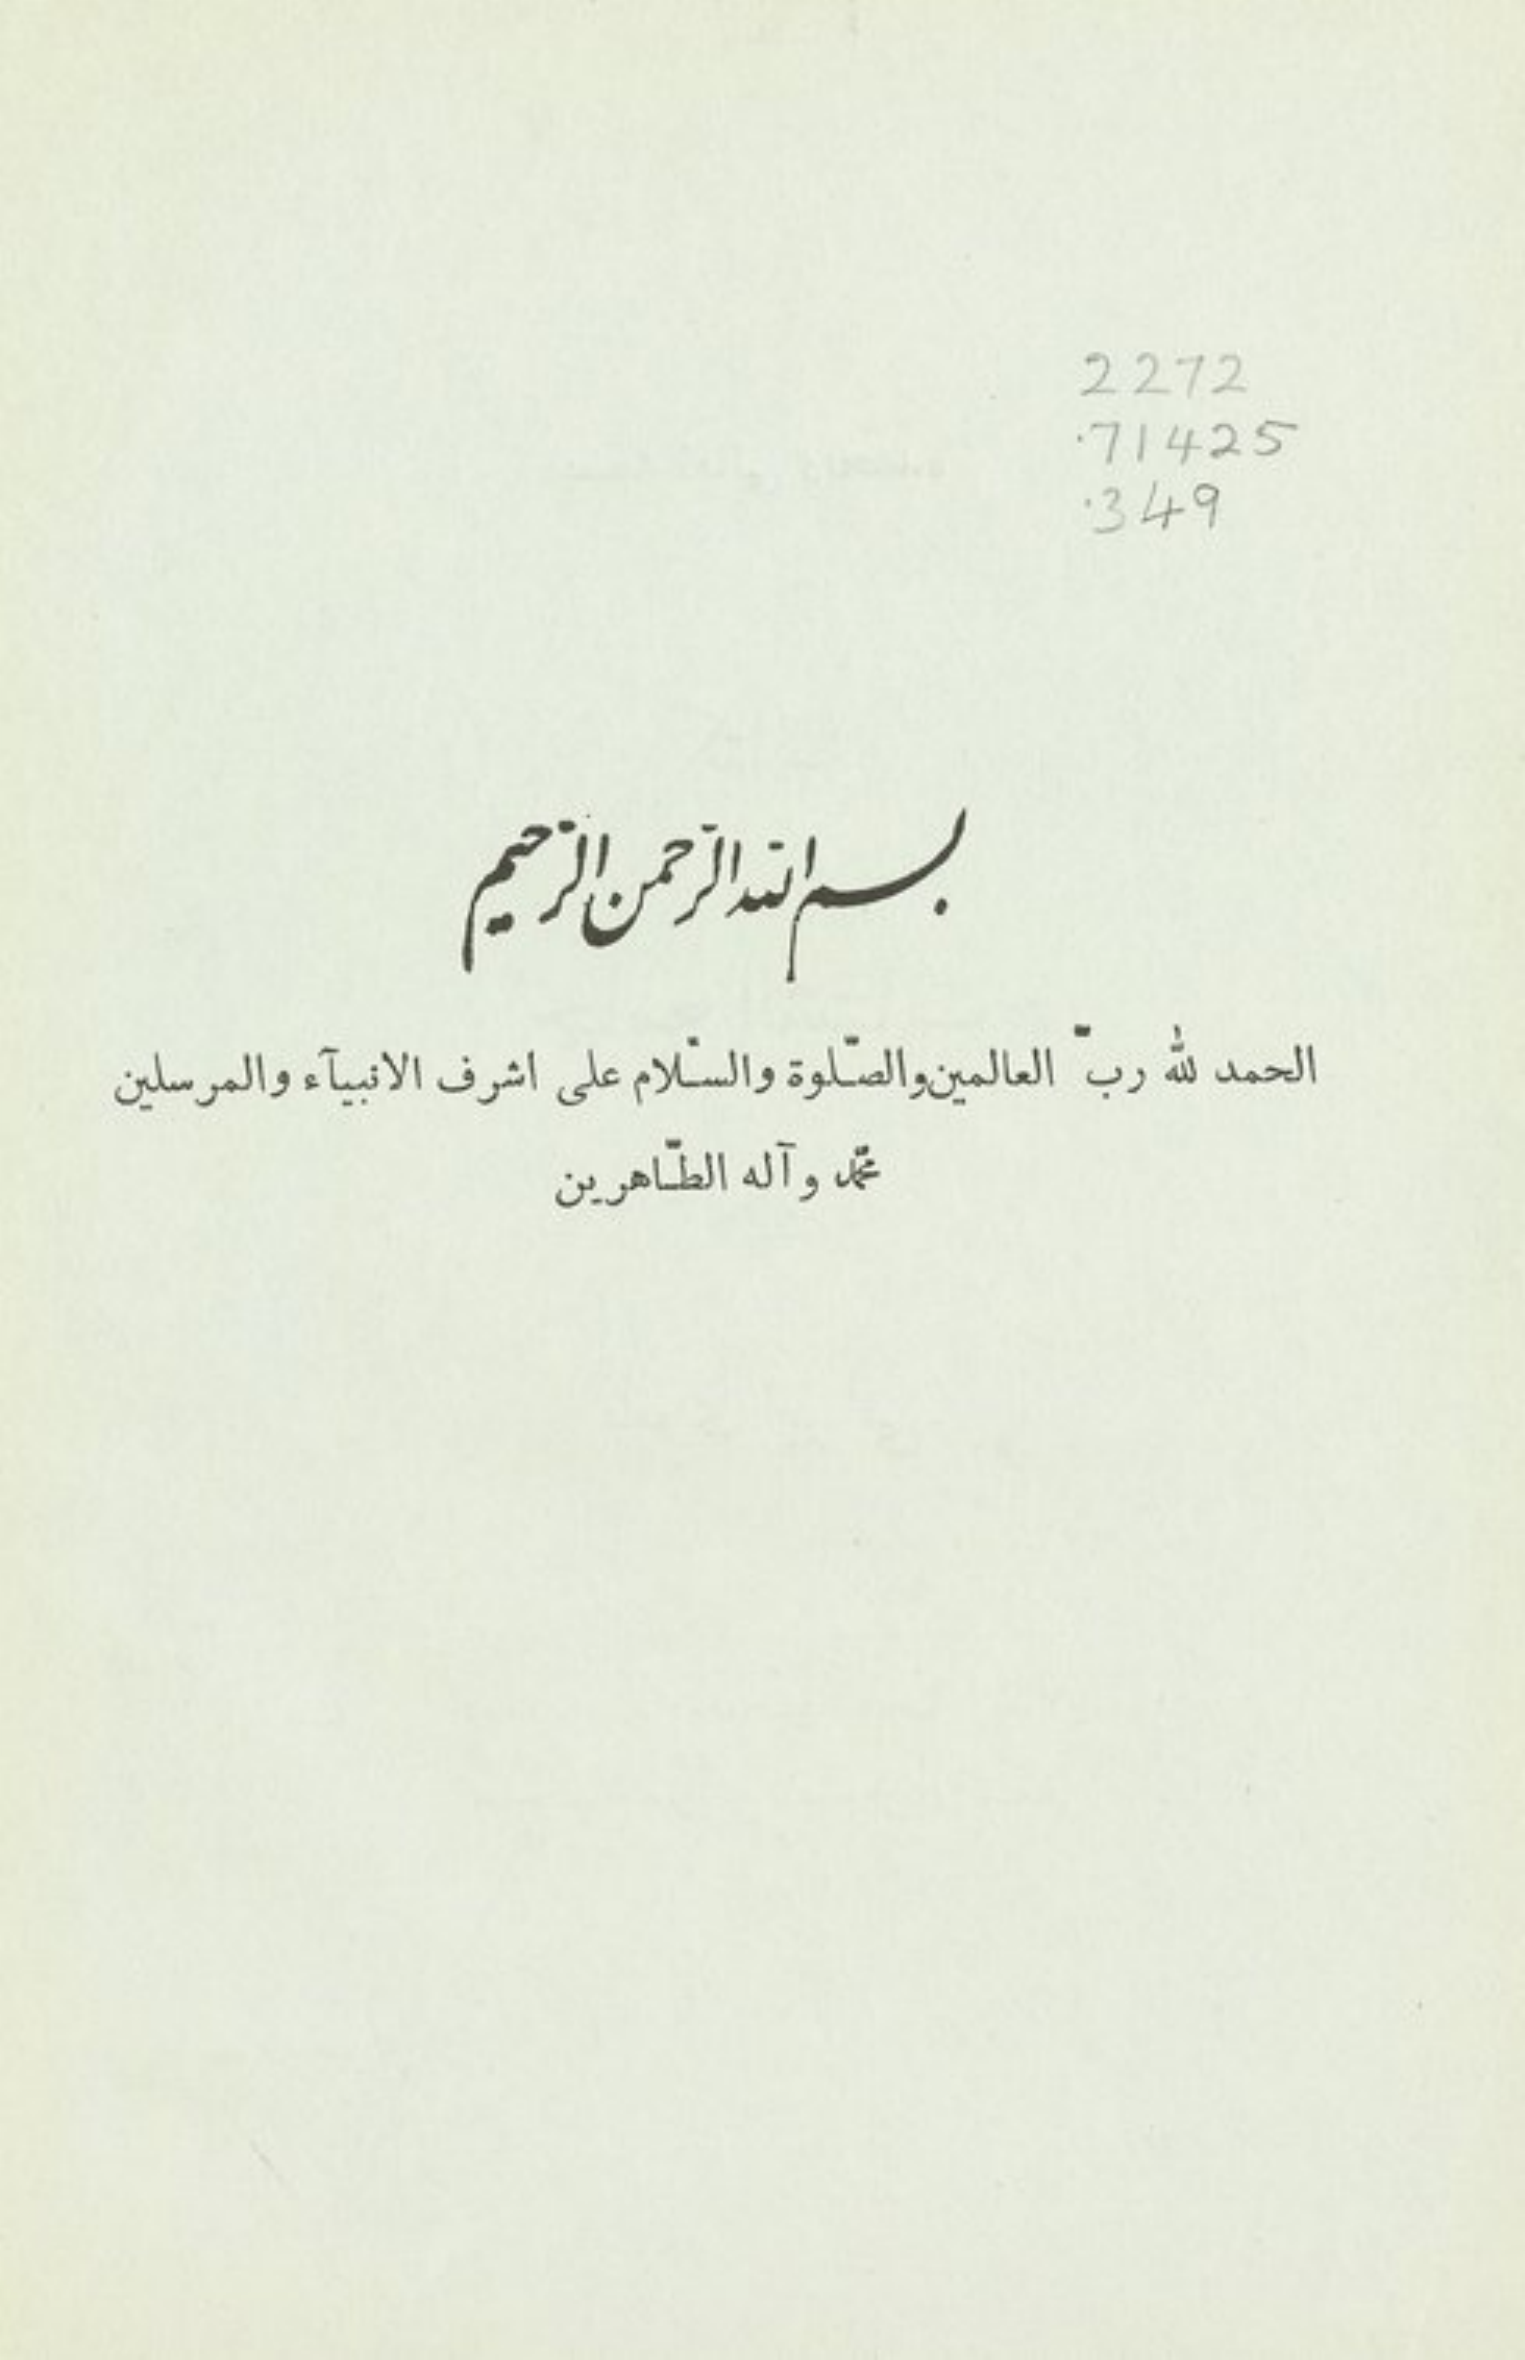 2272
.71425
.349
بسم الله الرحمن الرحيم
الحمد لله ربّ العالمين والصّلوة والسّلام على اشرف الانبيآء والمرسلين
محمّد وآله الطّاهرين